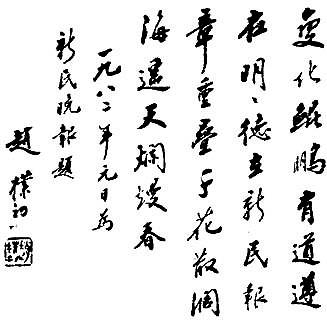 变化鲲鹏有道遵
在明〻德在新民报
章重叠千花散濶
海遥天烂熳春
一九八二年元日为
新民晚报题
赵朴初